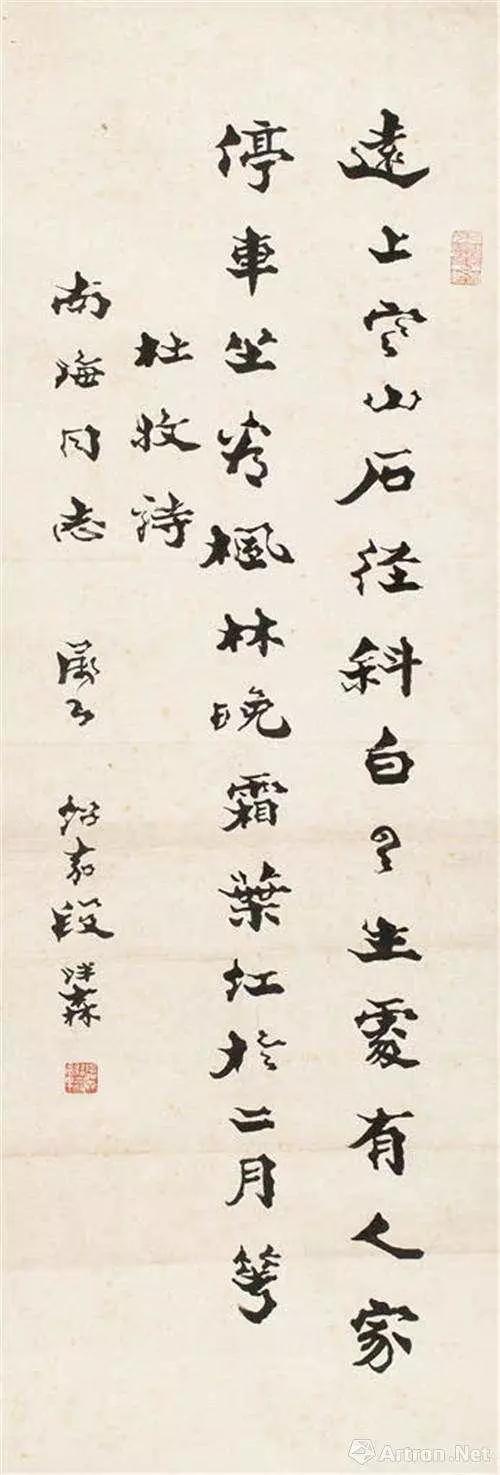 遠上寒山石径斜白云生處有人家
停車坐爱楓林晚霜葉红於二月花
杜牧詩
南海同志 属 段
Artron.Net